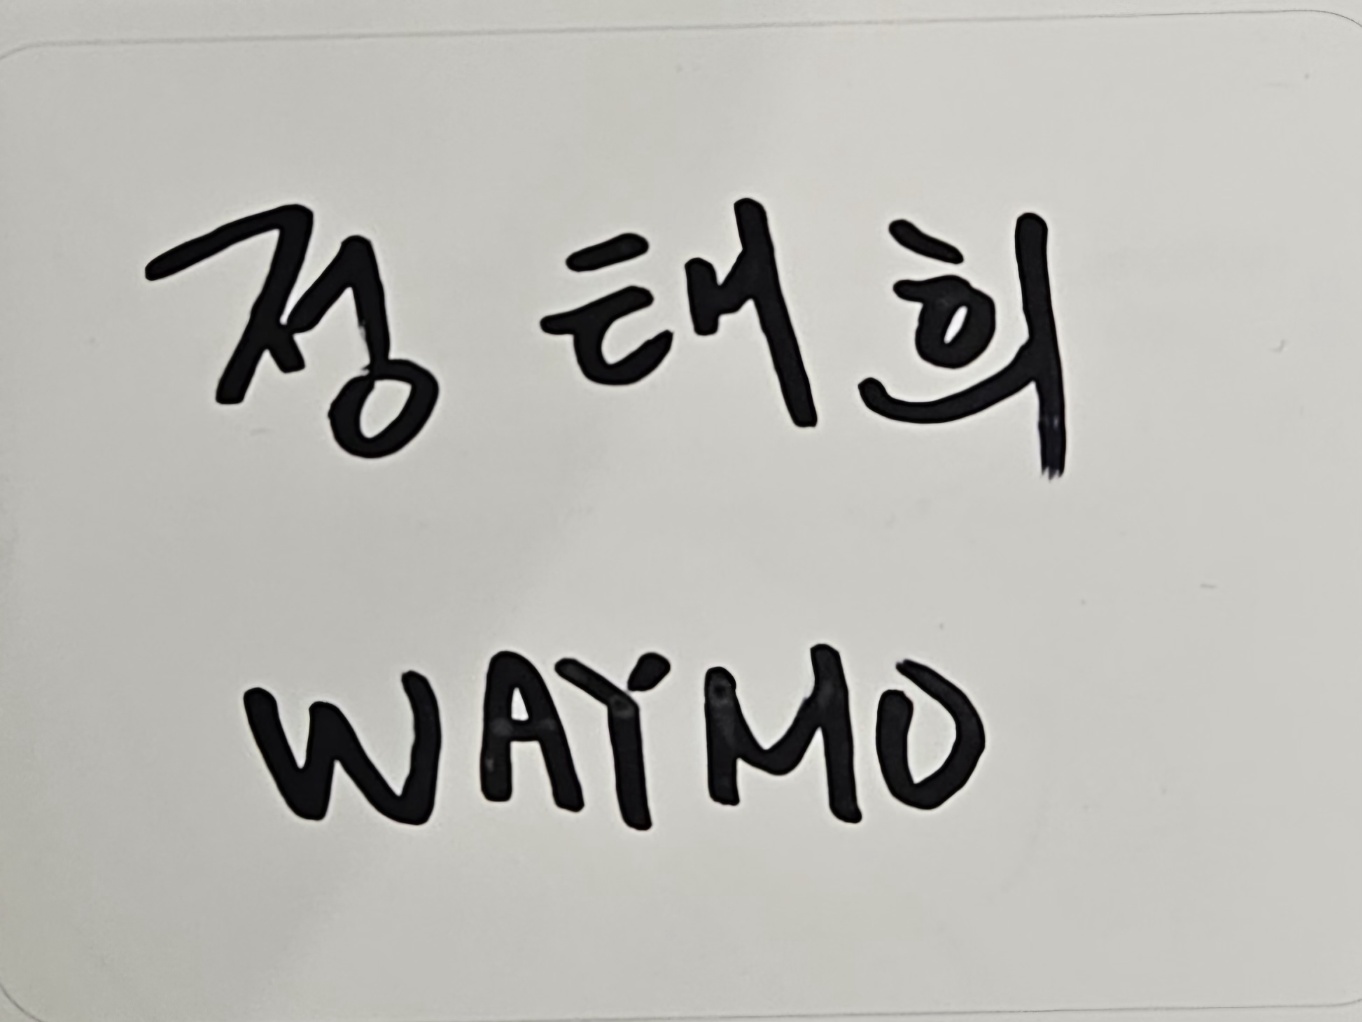 정태희
WAYMO